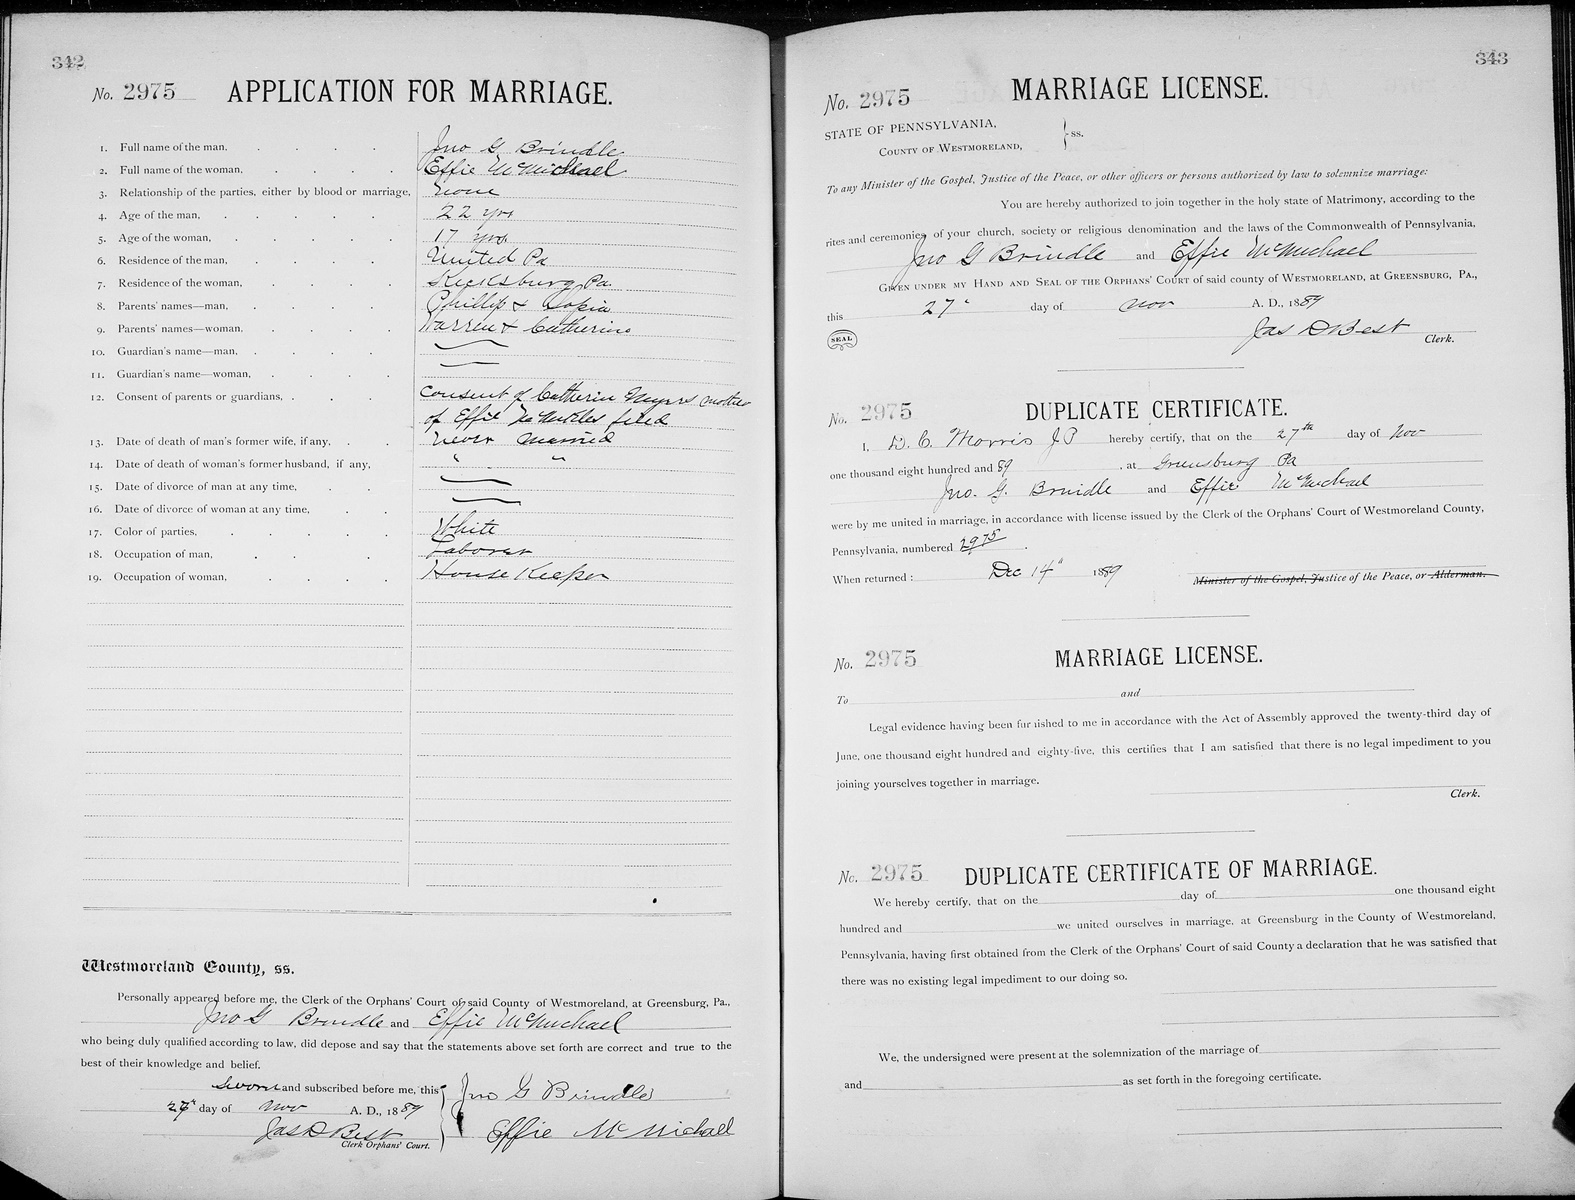 342
No. 2975 APPLICATION FOR MARRIAGE.
1. Full name of the man, Jno G Brindle
2. Full name of the woman, Effie McMichael
3. Relationship of the parties, either by blood or marriage, none
4. Age of the man, 22 yrs
5. Age of the woman, 17 yrs
6. Residence of the man, United Pa
7. Residence of the woman, Pa
8. Parents' names—man, Phillip &
9. Parents' names—woman, Warren & Catherine
10. Guardian's name—man,
11. Guardian's name—woman,
12. Consent of parents or guardians, Consent of Catherin Myers mother
of Effie filed
13. Date of death of man's former wife, if any, never married
14. Date of death of woman's former husband, if any, " "
15. Date of divorce of man at any time,
16. Date of divorce of woman at any time,
17. Color of parties, White
18. Occupation of man, Laborer
19. Occupation of woman, House Keeper
Westmoreland County, ss.
Personally appeared before me, the Clerk of the Orphans' Court of said County of Westmoreland, at Greensburg, Pa.,
Jno G Brindle and Effie McMichael
who being duly qualified according to law, did depose and say that the statements above set forth are correct and true to the
best of their knowledge and belief.
Sworn and subscribed before me, this Jno G Brindle
27" day of Nov A. D., 1889
Jas D Best Effie McMichael
Clerk Orphans' Court.
343
No. 2975 MARRIAGE LICENSE.
STATE OF PENNSYLVANIA,
COUNTY OF WESTMORELAND, } ss.
To any Minister of the Gospel, Justice of the Peace, or other officers or persons authorized by law to solemnize marriage:
You are hereby authorized to join together in the holy state of Matrimony, according to the
rites and ceremonies of your church, society or religious denomination and the laws of the Commonwealth of Pennsylvania,
Jno G Brindle and Effie McMichael
GIVEN UNDER MY HAND AND SEAL OF THE ORPHANS' COURT of said county of WESTMORELAND, at GREENSBURG, PA.,
this 27" day of Nov A. D., 1889
SEAL Jas D Best Clerk.
No. 2975 DUPLICATE CERTIFICATE.
I, D. C. Morris J P hereby certify, that on the 27th day of Nov
one thousand eight hundred and 89, at Greensburg Pa
Jno. G. Brindle and Effie McMichael
were by me united in marriage, in accordance with license issued by the Clerk of the Orphans' Court of Westmoreland County,
Pennsylvania, numbered 2975.
When returned: Dec 14" 1889 Minister of the Gospel, Justice of the Peace, or Alderman.
No. 2975 MARRIAGE LICENSE.
To and
Legal evidence having been furnished to me in accordance with the Act of Assembly approved the twenty-third day of
June, one thousand eight hundred and eighty-five, this certifies that I am satisfied that there is no legal impediment to you
joining yourselves together in marriage.
Clerk.
No. 2975 DUPLICATE CERTIFICATE OF MARRIAGE.
We hereby certify, that on the day of one thousand eight
hundred and we united ourselves in marriage, at Greensburg in the County of Westmoreland,
Pennsylvania, having first obtained from the Clerk of the Orphans' Court of said County a declaration that he was satisfied that
there was no existing legal impediment to our doing so.
We, the undersigned were present at the solemnization of the marriage of
and as set forth in the foregoing certificate.